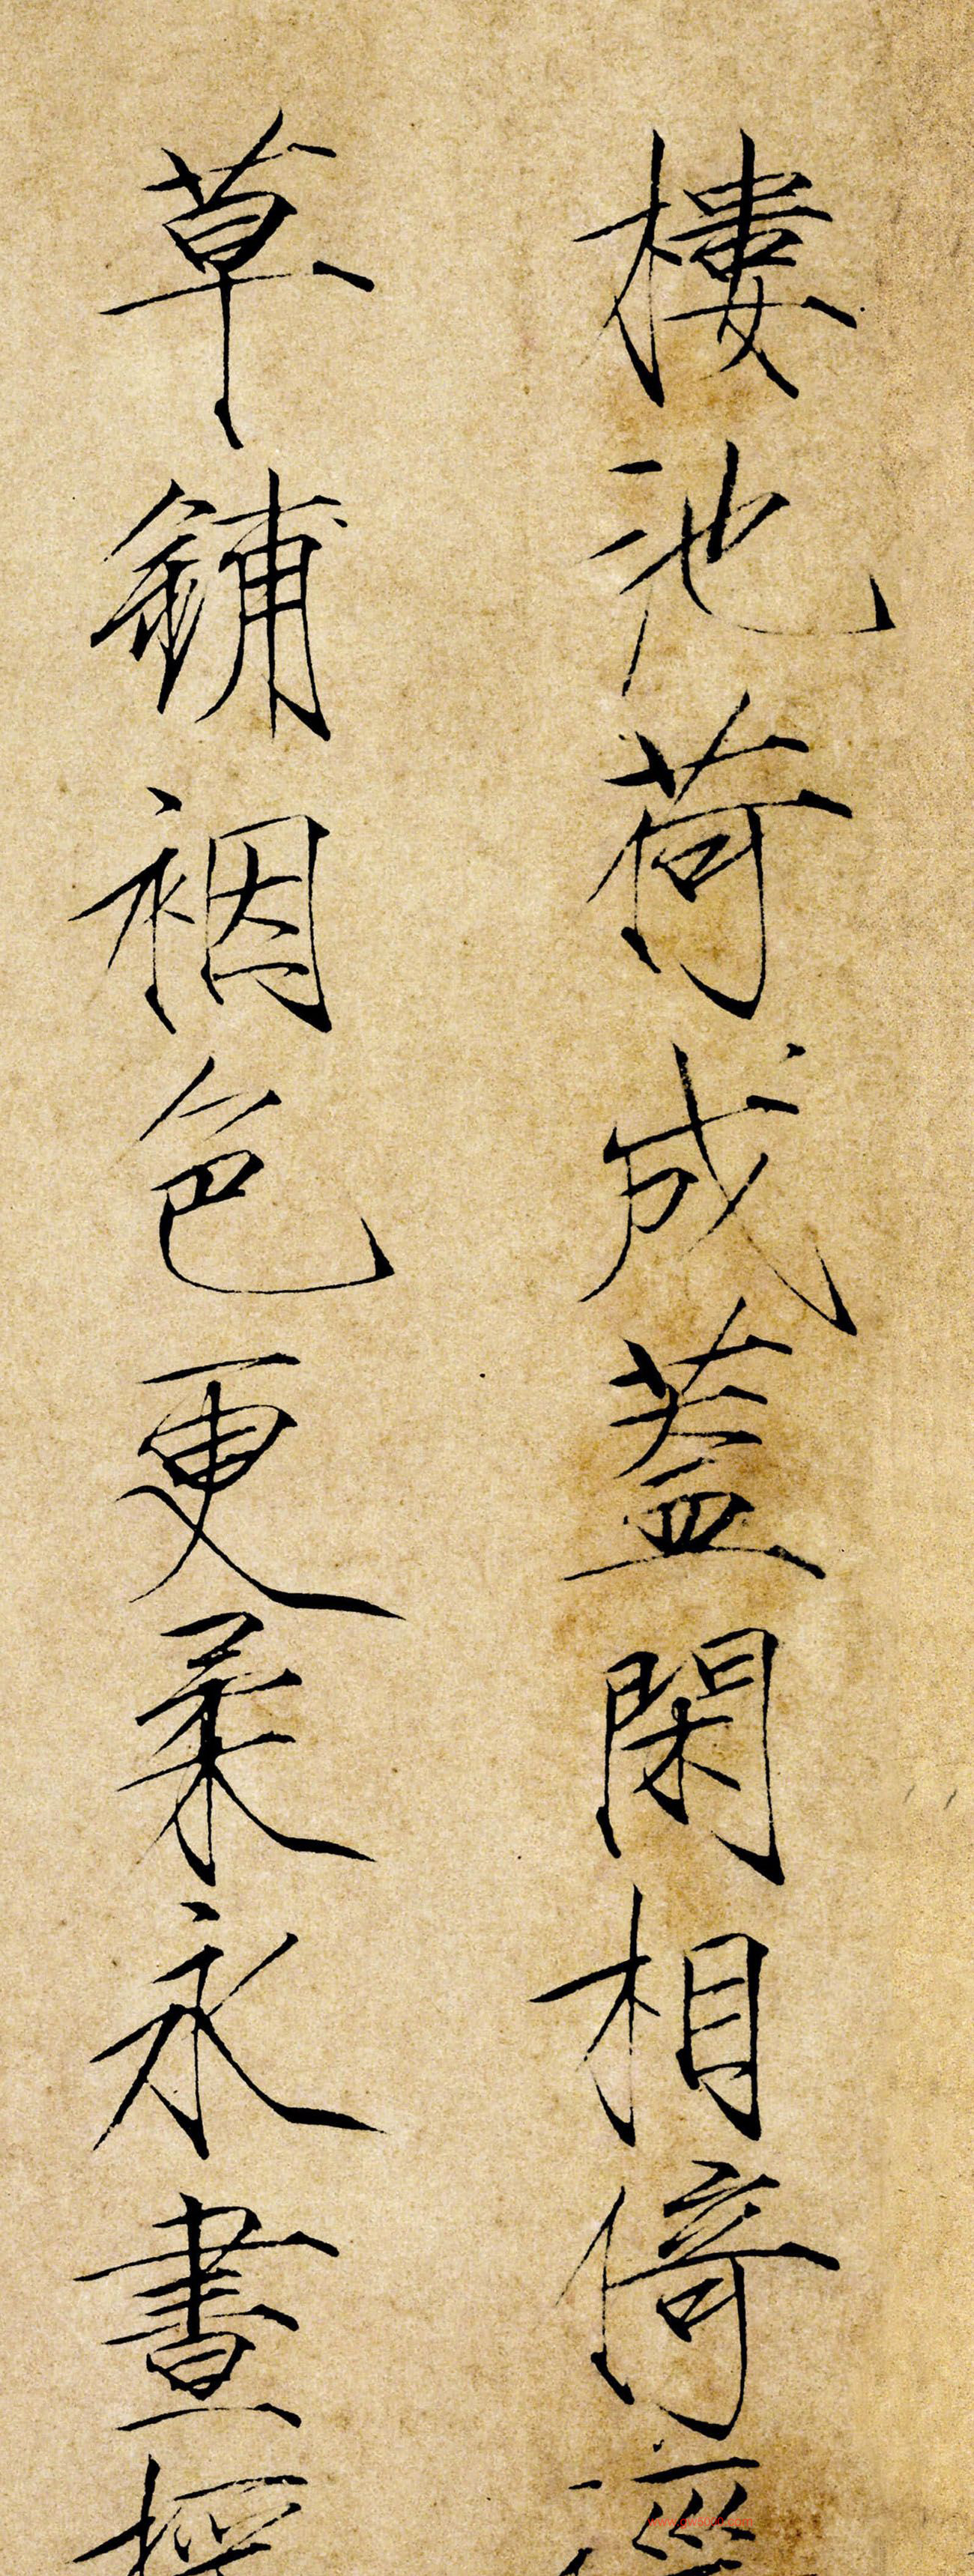 樓池荷成蓋閑相倚徑
草鋪裀色更柔永晝